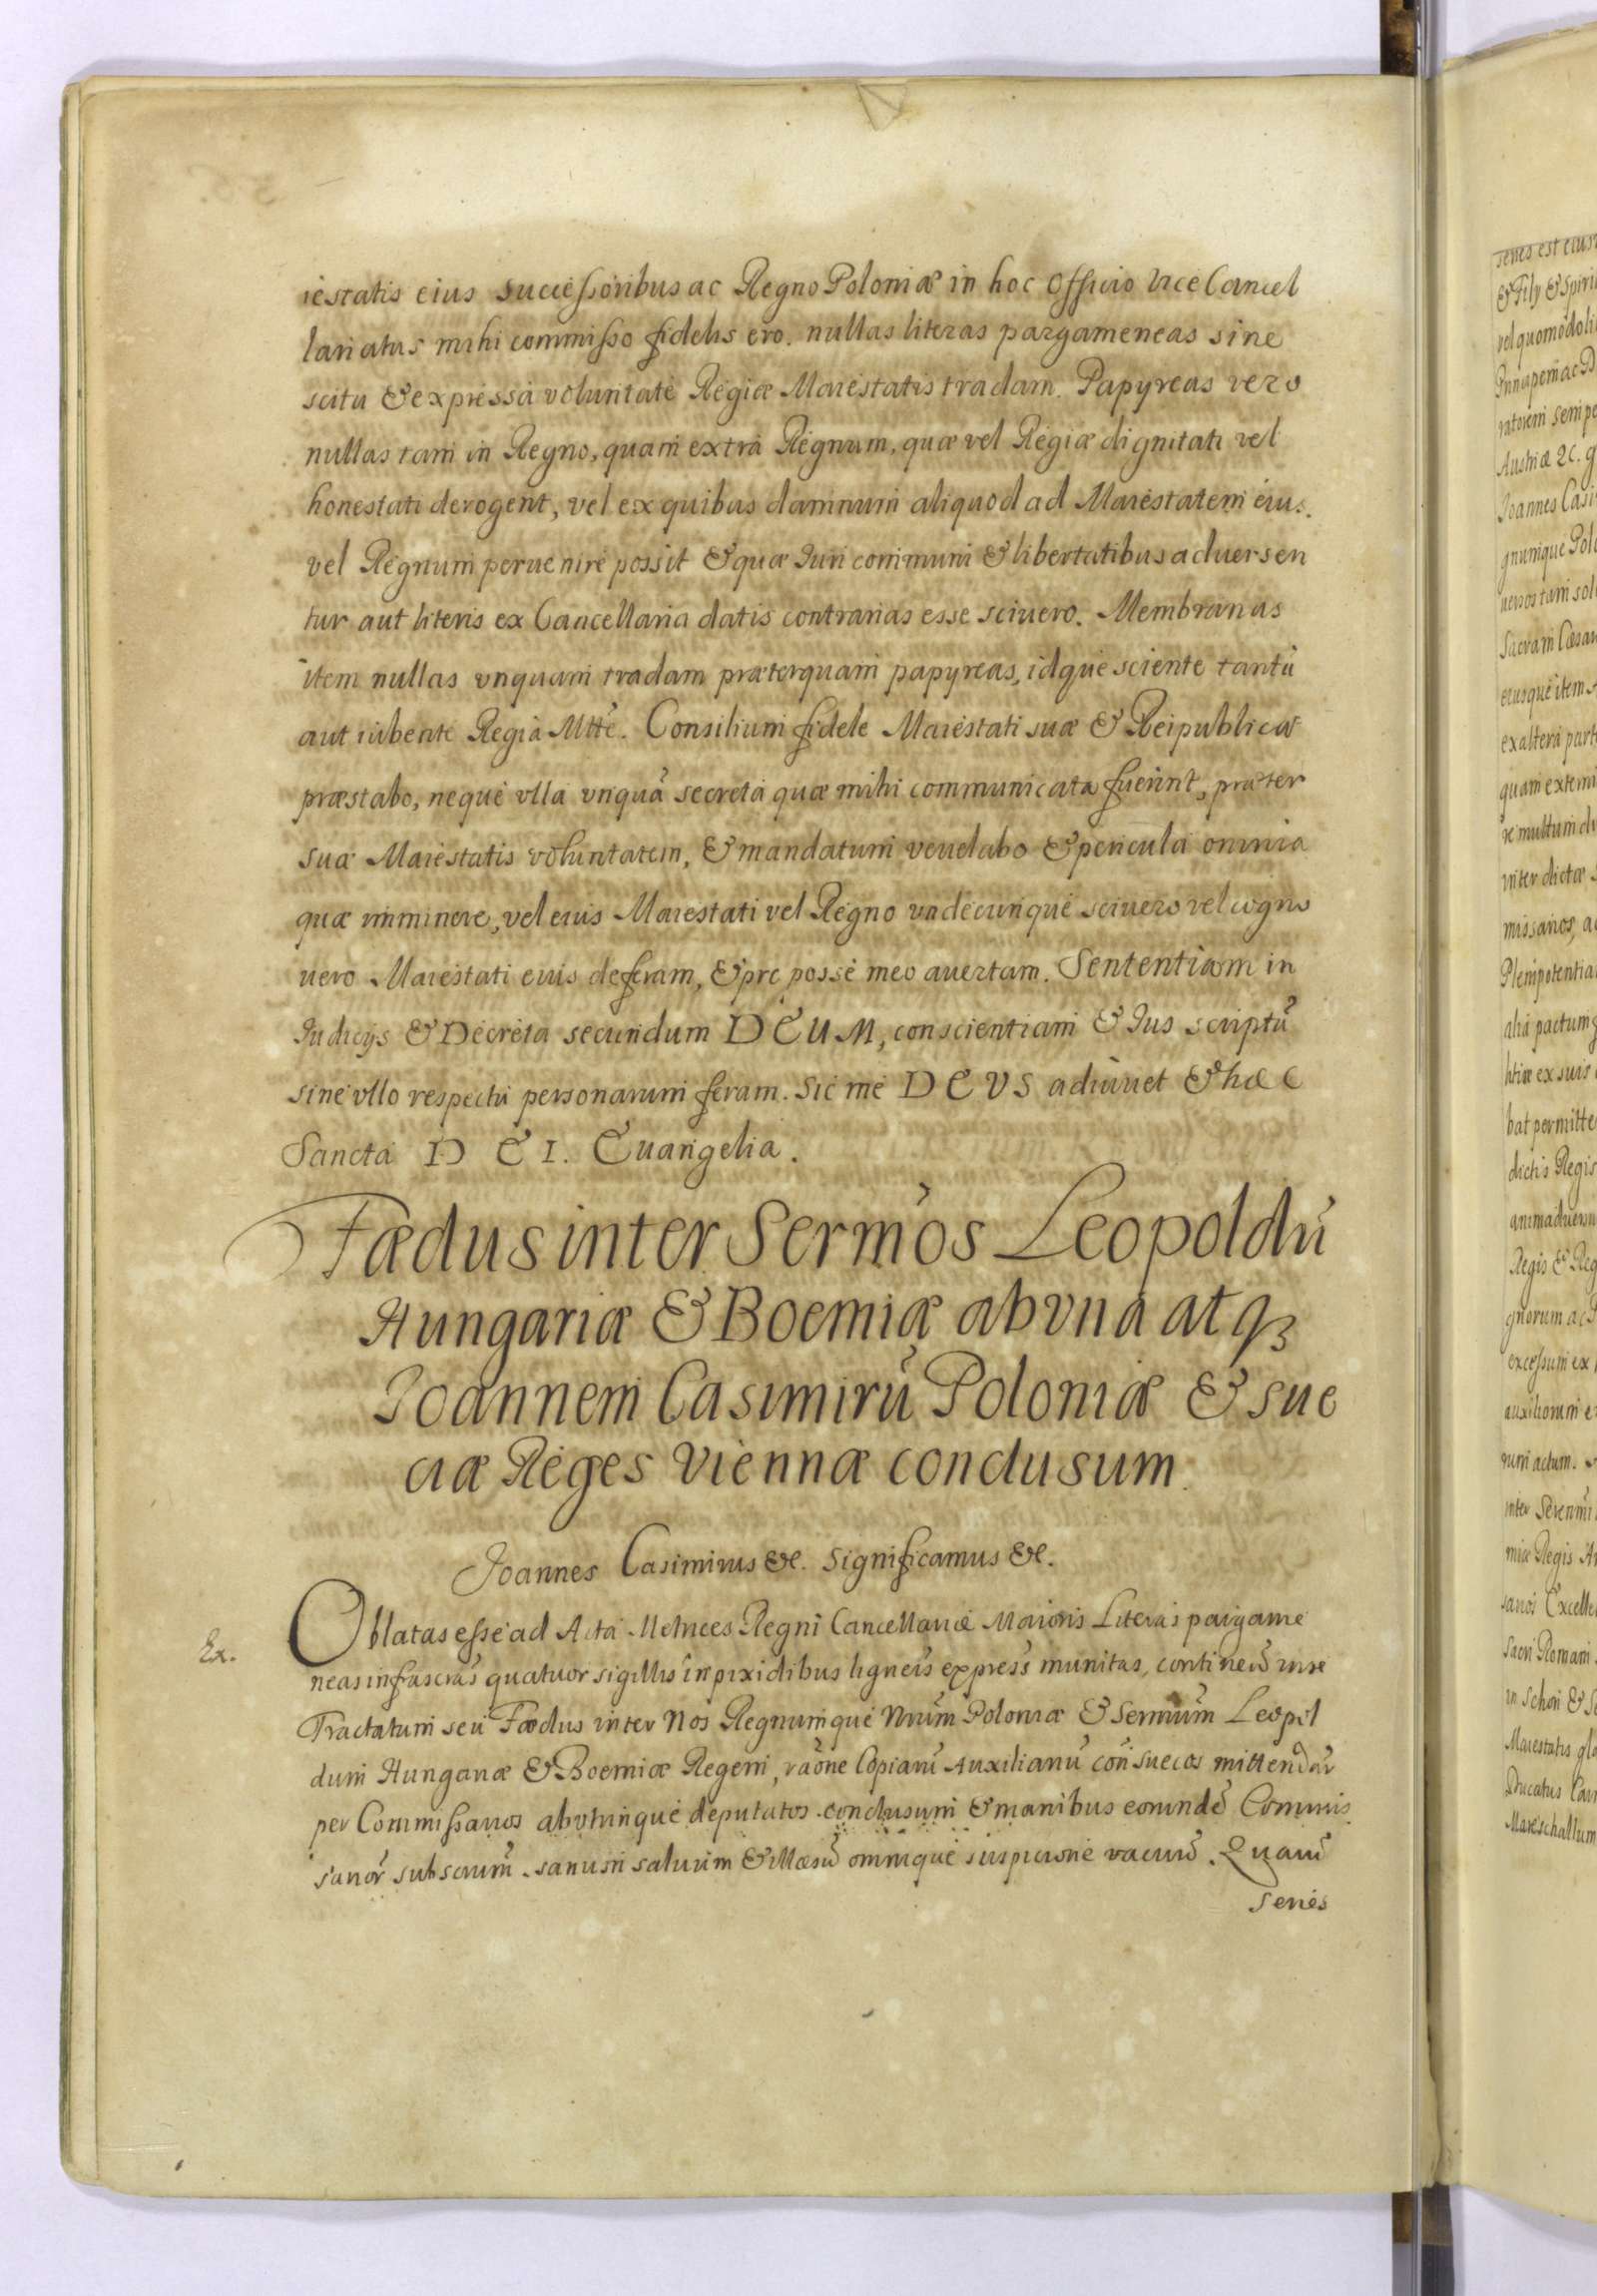 iestatis eius successoribus ac Regno Poloniæ in hoc Officio Vice Cancel
lariatus mihi commisso fidelis ero. nullas literas pargameneas sine
scitu & expressa voluntate Regiæ Maiestatis tradam. Papyreas vero
nullas tam in Regno, quam extra Regnum, quæ vel Regiæ dignitati vel
honestati derogent, vel ex quibus damnum aliquod ad Maiestatem eius.
vel Regnum peruenire possit & quæ Iuri communi & libertatibus aduersen
tur aut literis ex Cancellaria datis contrarias esse sciuero. Membranas
item nullas vnquam tradam præterquam papyreas, idque sciente tantũ
aut iubente Regia Mtte. Consilium fidele Maiestati suæ & Reipublicæ
præstabo, neque vlla vnquã secreta quæ mihi communicata fuerint, præter
suæ Maiestatis voluntatem, & mandatum reuelabo & pericula omnia
quæ imminere, vel eius Maiestati vel Regno vndecunque sciuero vel cogno
uero Maiestati eius deferam, & pro posse meo auertam. Sententiam in
Iudicijs & Decreta secundum DEUM, conscientiam & Ius scriptũ
sine vllo respectu personarum feram. Sic me DEVS adiuuet & hæc
Sancta DEI. Euangelia.
Fœdus inter Sermos Leopoldũ
Hungariæ & Boemiæ ab vna atq3
Joannem Casimirũ Poloniæ & Sue
ciæ Reges Viennæ conclusum.
Joannes Casimirus &c. Significamus &c.
Ex.
Oblatas esse ad Acta Metrices Regni Cancellariæ Maioris Literas pargame
neas infrascras quatuor sigillis in pixidibus ligneis express munitas, continen in se
Tractatum seu Fœdus inter Nos Regnumque Nrum Poloniæ & Sermum Leopol
dum Hungariæ & Boemiæ Regem, raõne Copiarũ Auxiliariũ con Suecos mittendar
per Commissarios ab vtrinque deputatos conclusum & manibus eorundẽ Commis
sarior subscrum sanum saluum & illæsũ omnique suspicione vacuũ. Quarũ
series